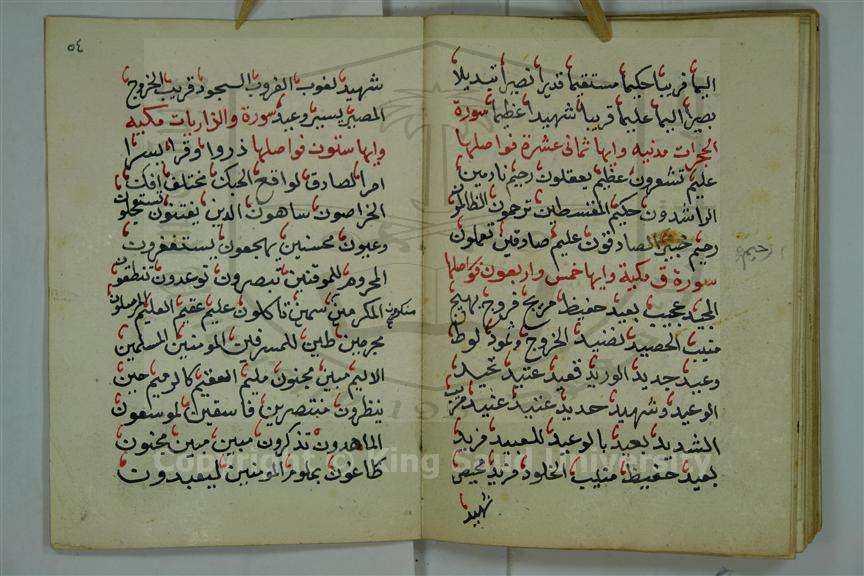 اليما قريبا حكيما مستقيما قديرا نصيرا تبديلا
بصيرا اليما عليما قريبا شهيدا عظيما سورة
الحجرات مدنية وايها ثمانى عشرة فواصلها
عليم تشعرون عظيم يعقلون رحيم نادمين
الراشدون حكيم المقسطين ترحمون الظالمون
رحيم خبير الصادقون عليم صادقين تعملون
سورة ق مكية وايها خمس واربعون فواصلها
المجيد عجيب بعيد حفيظ مريج فروج بهيج
منيب الحصيد نضيد الخروج وثمود لوط
وعيد جديد الوريد قعيد عتيد تحيد
الوعيد وشهيد حديد عتيد عنيد مريب
الشديد بعيد بالوعيد للعبيد مزيد
بعيد حفيظ منيب الخلود مزيد محيص
شهيد
٥٤
شهيد لغوب الغروب السجود قريب الخروج
المصير يسير وعيد سورة والذاريات مكيه
وايها ستون فواصلها ذروا وقرا يسرا
امرا لصادق لواقع الحبك مختلف افك
الخراصون ساهون الدين يفتنون تستعجلون
وعيون محسنين يهجعون يستغفرون
المحروم للموقنين تبصرون توعدون تنطقون
المكرمين منكرون سمين تاكلون عليم عقيم العليم المرسلون
مجرمين طين للمسرفين المومنين المسلمين
الاليم مبين مجنون مليم العقيم كالرميم حين
ينظرون منتصرين فاسقين لموسعون
الماهدون تذكرون مبين مبين مجنون
طاغون بملوم المومنين ليعبدون
Copyright © King Saud University